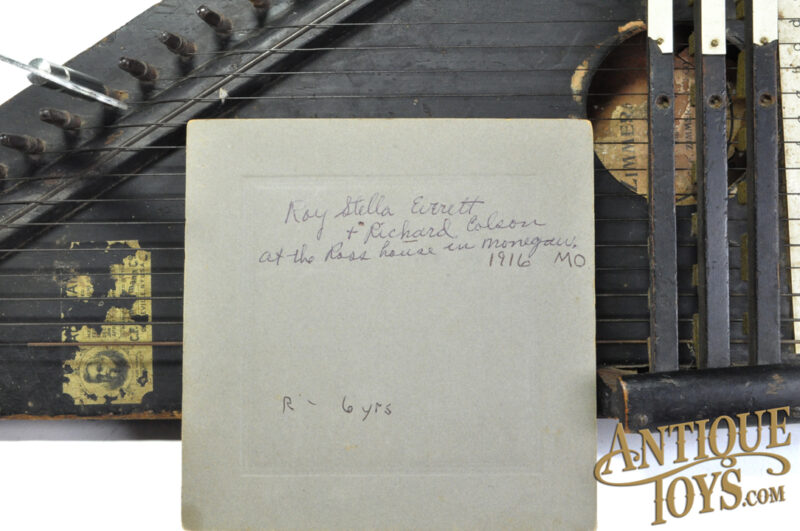 Roy Stella Everett
+ Richard Colson
at the Ross house in Monegaw.
1916 MO
R - 6 yrs
ZIMMER
ANTIQUE
TOYS.COM